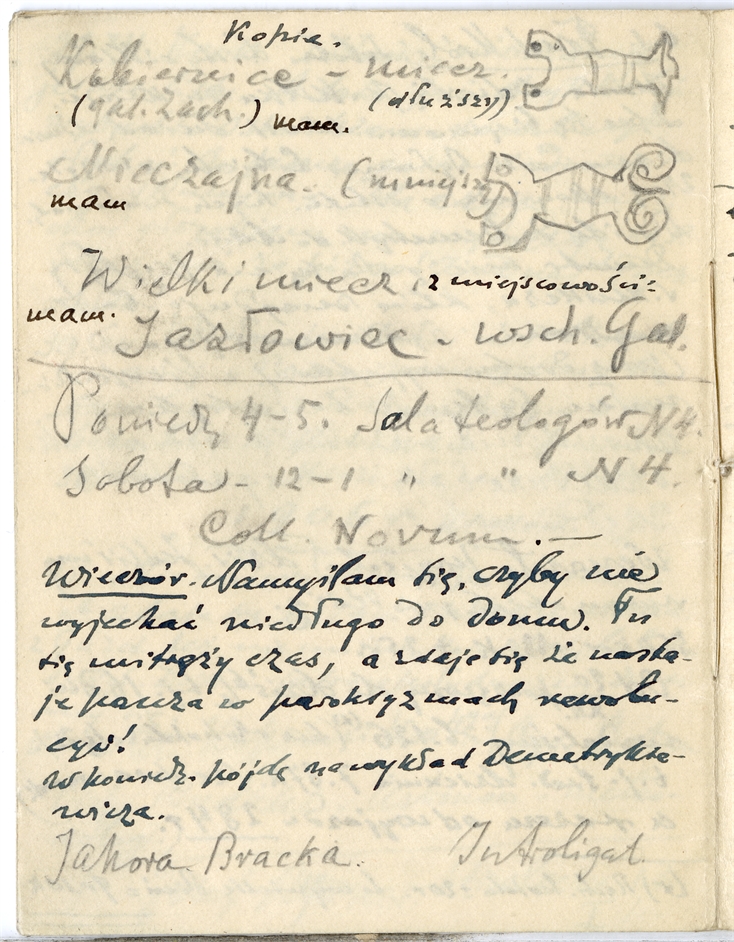 Kopie.
Kobiernice – miecz.
(gal. Zach.) mam. (dłuższy)
Nieczajna. (mniejszy)
mam
Wielki miecz z miejscowości:
mam.
Jazłowiec – wsch. Gal.
Poniedz 4–5. Sala teologów N 4.
Sobota – 12–1 " " N 4.
Coll. Novum. —
Wieczór. Namyślam się, czyby nie
wyjechać niedługo do domu. Tu
się mitręży czas, a zdaje się że nasta-
je pauza w paroksyzmach rewolu-
cyi!
W poniedz. pójdę na wykład Demetrykie-
wicza.
Jahoda. Bracka. Introligat.